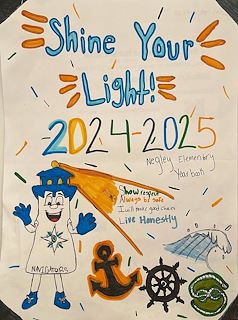 Shine Your
Light!
2024-2025
Negley Elementry
Yearbook
Show respect
Always be safe
I will make good choices
Live Honestly
NAVIGATORS